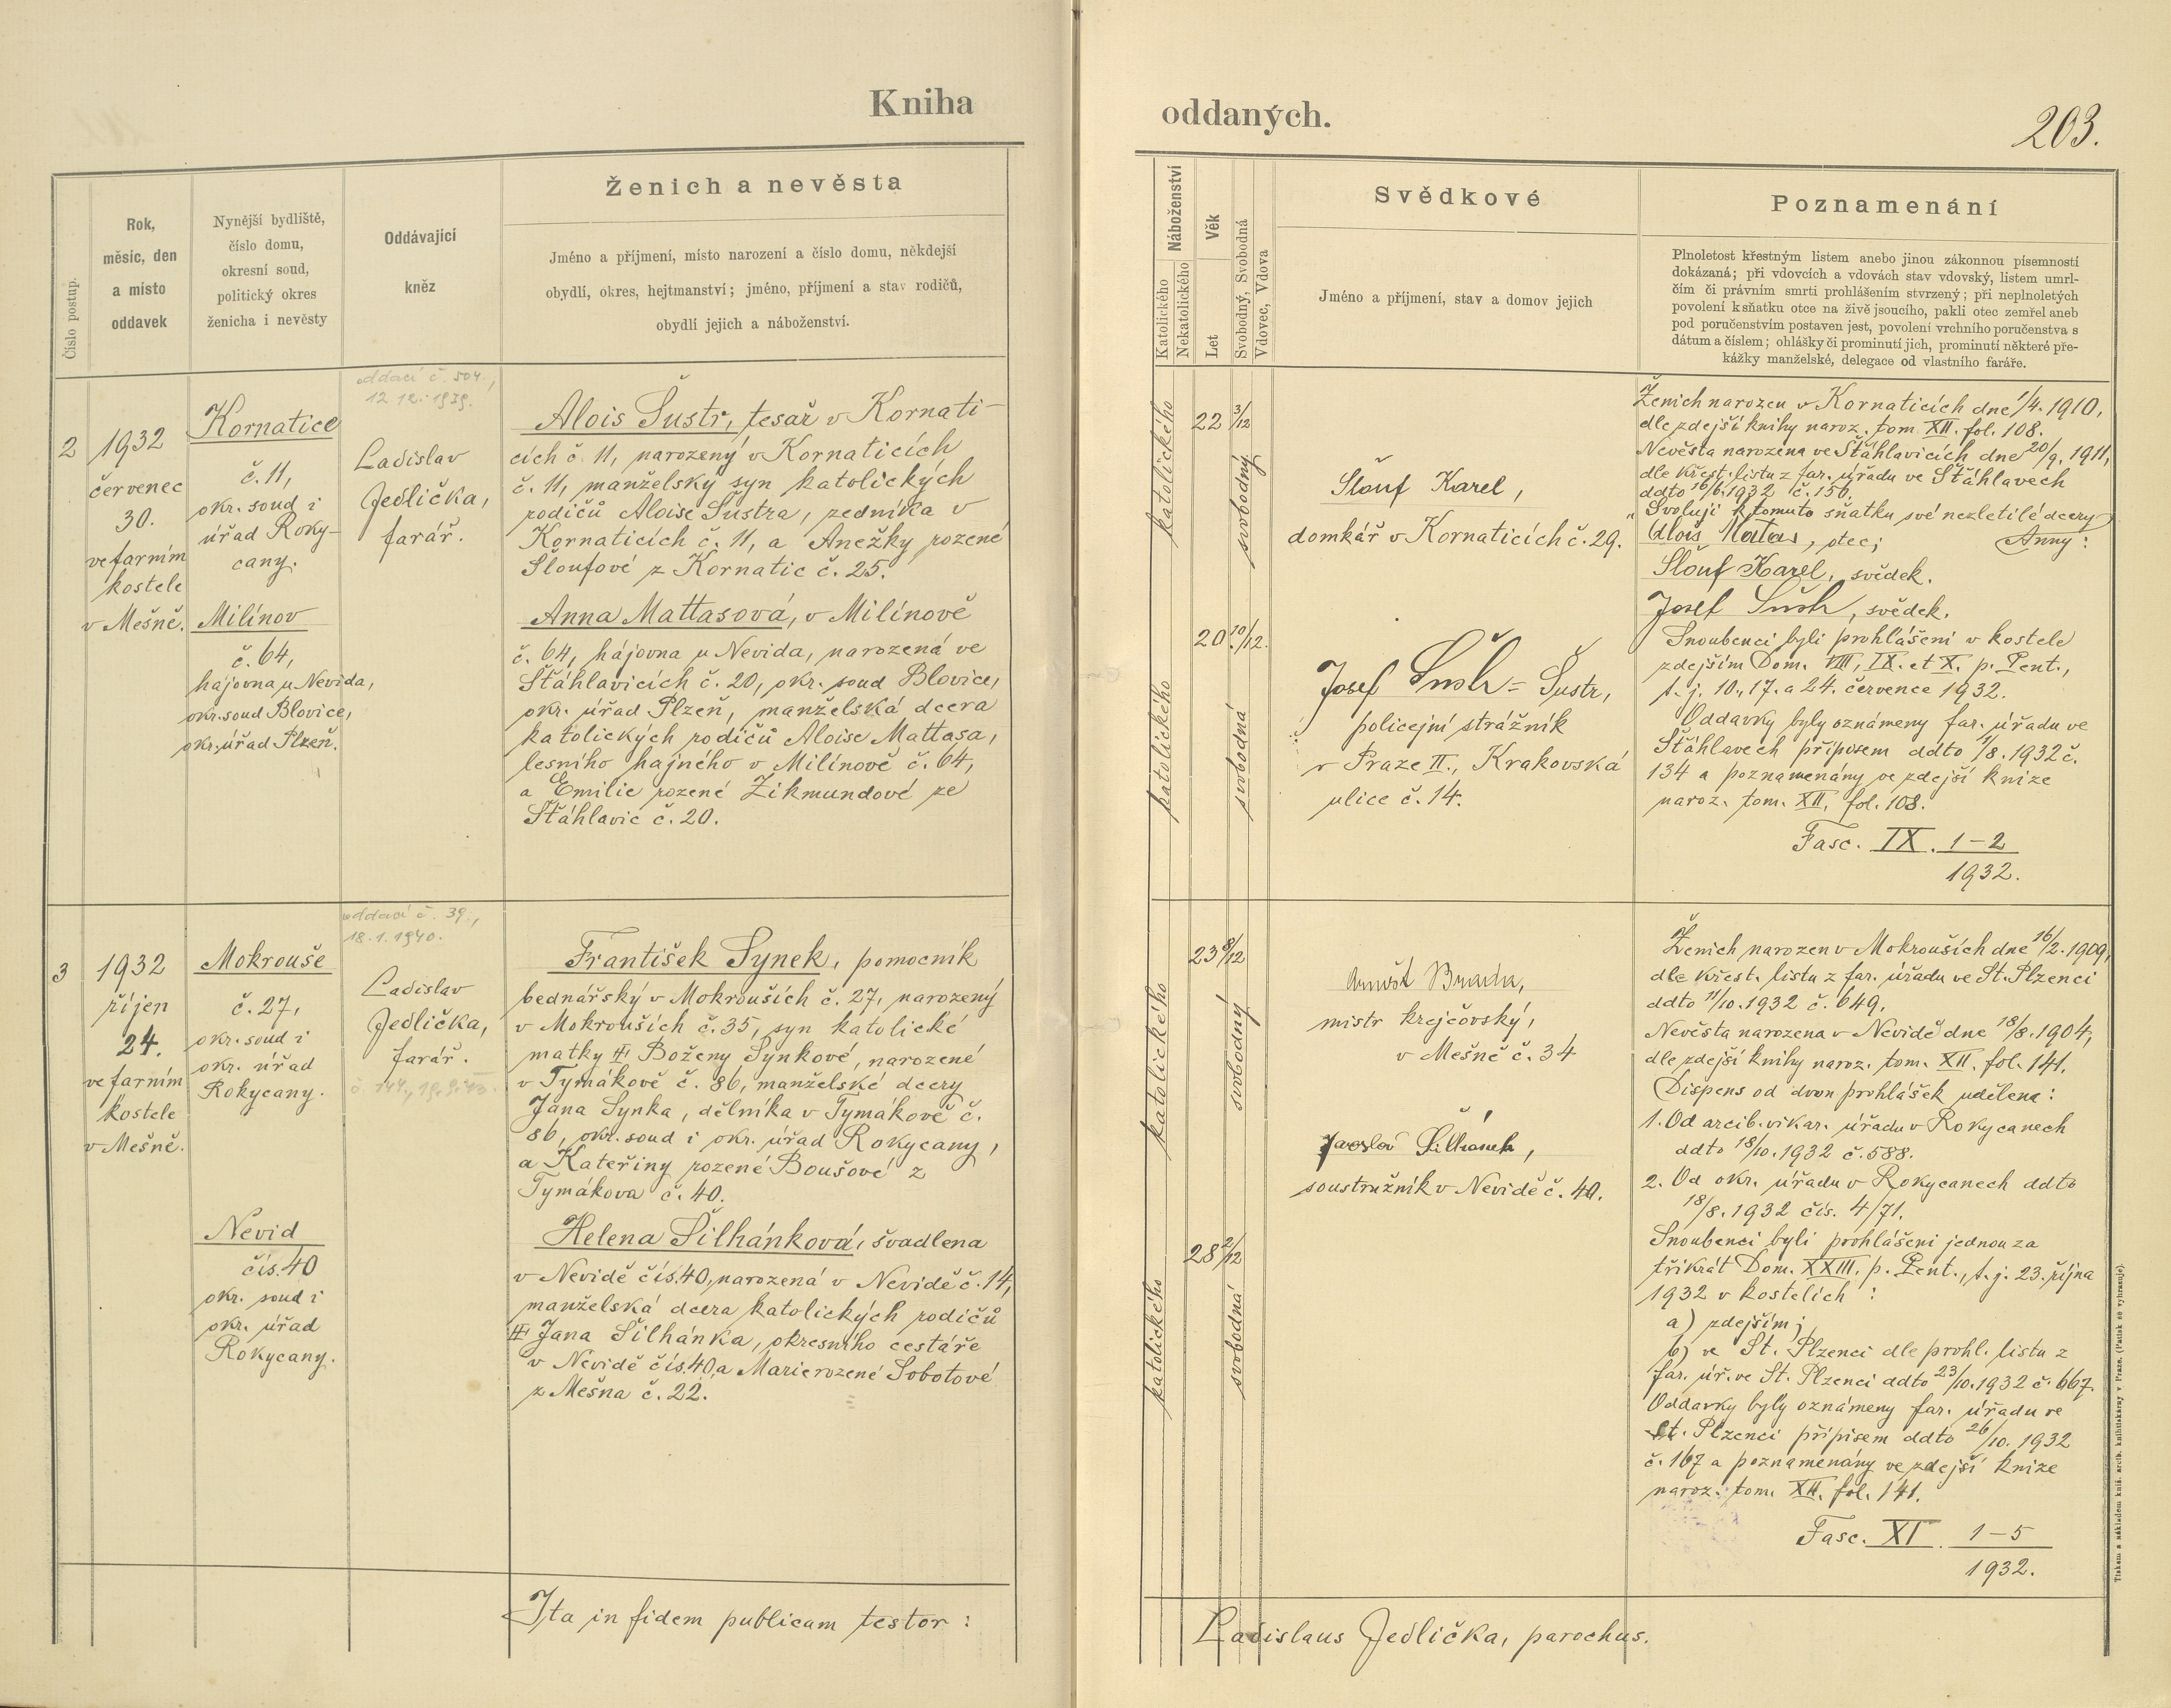 Kniha
oddaných.
203.
Číslo postup.
Rok,
měsíc, den
a místo
oddavek
Nynější bydliště,
číslo domu,
okresní soud,
politický okres
ženicha i nevěsty
Oddávající
kněz
Ženich a nevěsta
Jméno a příjmení, místo narození a číslo domu, někdejší
obydlí, okres, hejtmanství; jméno, příjmení a stav rodičů,
obydlí jejich a náboženství.
Náboženství
Katolického
Nekatolického
Věk
Let
Svobodný, Svobodná
Vdovec, Vdova
Svědkové
Jméno a příjmení, stav a domov jejich
Poznamenání
Plnoletost křestným listem anebo jinou zákonnou písemností
dokázaná; při vdovcích a vdovách stav vdovský, listem umrl-
čím či právním smrti prohlášením stvrzený; při neplnoletých
povolení k sňatku otce na živě jsoucího, pakli otec zemřel aneb
pod poručenstvím postaven jest, povolení vrchního poručenstva s
dátum a číslem; ohlášky či prominutí jich, prominutí některé pře-
kážky manželské, delegace od vlastního faráře.
2
1932
červenec
30.
ve farním
kostele
v Mešně.
Kornatice
č. 11,
okr. soud i
úřad Roky-
cany.
Milínov
č. 64,
hájovna u Nevida,
okr. soud Blovice,
okr. úřad Plzeň.
oddací č. 504.,
12.12.1939.
Ladislav
Jedlička,
farář.
Alois Šustr, tesař v Kornati-
cích č. 11, narozený v Kornaticích
č. 11, manželský syn katolických
rodičů Aloise Šustra, zedníka v
Kornaticích č. 11, a Anežky rozené
Šloufové z Kornatic č. 25.
Anna Mattasová, v Milínově
č. 64, hájovna u Nevida, narozená ve
Šťáhlavicích č. 20, okr. soud Blovice,
okr. úřad Plzeň, manželská dcera
katolických rodičů Aloise Mattasa,
lesního hajného v Milínově č. 64,
a Emilie rozené Zikmundové ze
Šťáhlavic č. 20.
katolického
22 3/12
svobodný
katolického
20 10/12.
svobodná
Šlouf Karel,
domkář v Kornaticích č. 29.
Josef Šustr = Šustr,
policejní strážník
v Praze II., Krakovská
ulice č. 14.
Ženich narozen v Kornaticích dne 1/4. 1910,
dle zdejší knihy naroz. tom. XII. fol. 108.
Nevěsta narozena ve Šťáhlavicích dne 20/9. 1911,
dle křest. listu z far. úřadu ve Šťáhlavech
ddto 16/6. 1932 č. 156.
"Svoluji k tomuto sňatku své nezletilé dcery
Anny:
Alois Matas, otec;
Šlouf Karel, svědek.
Josef Šustr, svědek.
Snoubenci byli prohlášeni v kostele
zdejším Dom. VIII, IX. et X. p. Pent.,
t. j. 10., 17. a 24. července 1932.
Oddavky byly oznámeny far. úřadu ve
Šťáhlavech přípisem ddto 1/8. 1932 č.
134 a poznamenány ve zdejší knize
naroz. tom. XII. fol. 108.
Fasc. IX. 1-2
1932.
3
1932
říjen
24.
ve farním
kostele
v Mešně.
Mokrouše
č. 27,
okr. soud i
okr. úřad
Rokycany.
Nevid
čís. 40
okr. soud i
okr. úřad
Rokycany.
oddací č. 39.,
18.1.1940.
Ladislav
Jedlička,
farář.
František Synek, pomocník
bednářský v Mokrouších č. 27, narozený
v Mokrouších č. 35, syn katolické
matky Boženy Synkové, narozené
v Tymákově č. 86, manželské dcery
Jana Synka, dělníka v Tymákově č.
86, okr. soud i okr. úřad Rokycany,
a Kateřiny rozené Boušové z
Tymákova č. 40.
Helena Šilhánková, švadlena
v Nevidě čís. 40, narozená v Nevidě č. 14,
manželská dcera katolických rodičů
Jana Šilhánka, okresního cestáře
v Nevidě čís. 40, a Marie rozené Sobotové
z Mešna č. 22.
katolického
23 8/12
svobodný
katolického
28 2/12
svobodná
Arnošt
mistr krejčovský,
v Mešně č. 34
Jaroslav Šilhánek,
soustružník v Nevidě č. 40.
Ženich narozen v Mokrouších dne 16/2. 1909,
dle křest. listu z far. úřadu ve St. Plzenci
ddto 11/10. 1932 č. 649.
Nevěsta narozena v Nevidě dne 18/8. 1904,
dle zdejší knihy naroz. tom. XII. fol. 141.
Dispens od dvou prohlášek udělena:
1. Od arcib. vikar. úřadu v Rokycanech
ddto 18/10. 1932 č. 588.
2. Od okr. úřadu v Rokycanech ddto
18/8. 1932 čís. 4/71.
Snoubenci byli prohlášeni jednou za
třikrát Dom. XXIII. p. Pent., t. j. 23. října
1932 v kostelích:
a) zdejším;
b) ve St. Plzenci dle prohl. listu z
far. úř. ve St. Plzenci ddto 23/10. 1932 č. 667.
Oddavky byly oznámeny far. úřadu ve
St. Plzenci přípisem ddto 26/10. 1932
č. 167 a poznamenány ve zdejší knize
naroz. tom. XII. fol. 141.
Fasc. XI. 1-5
1932.
Ita in fidem publicam testor:
Ladislaus Jedlička, parochus.
Tiskem a nákladem kníž. arcib. knihtiskárny v Praze. (Patisk se vyhrazuje).